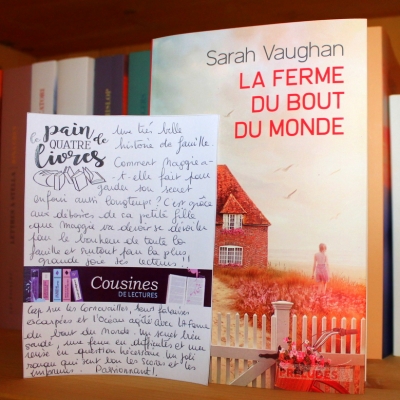 Sarah Vaughan
LA FERME
DU BOUT
DU MONDE
PRÉLUDES
le pain de
QUATRE
livres
Une très belle
histoire de famille.
Comment Maggie a-
t-elle fait pour
garder son secret
enfoui aussi longtemps ? C'est grâce
aux déboires de sa petite fille
que Maggie va devoir se dévoiler
pour le bonheur de toute la
famille et surtout pour la plus
grande joie des lecteurs !!
Cousines
DE LECTURES
Cap sur les Cornouailles, leurs falaises
escarpées et l'océan agité avec La Ferme
du bout du monde. Un secret bien
gardé, une ferme en difficultés et une
remise en question nécessaire. Un joli
roman qui sent bon les scones et les
embruns. Passionnant !